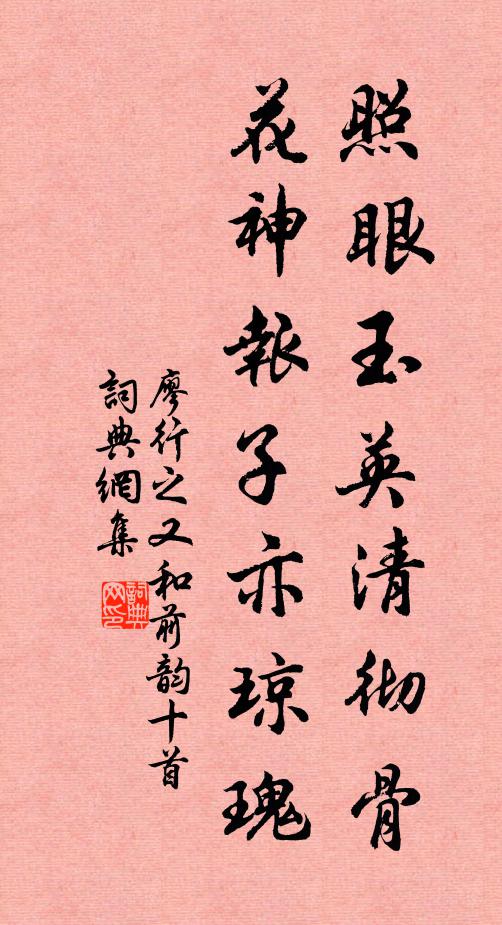 照眼玉英清彻骨
花神報子亦琼瑰
廖行之又和前韵十首
詞典網集
詞典网印